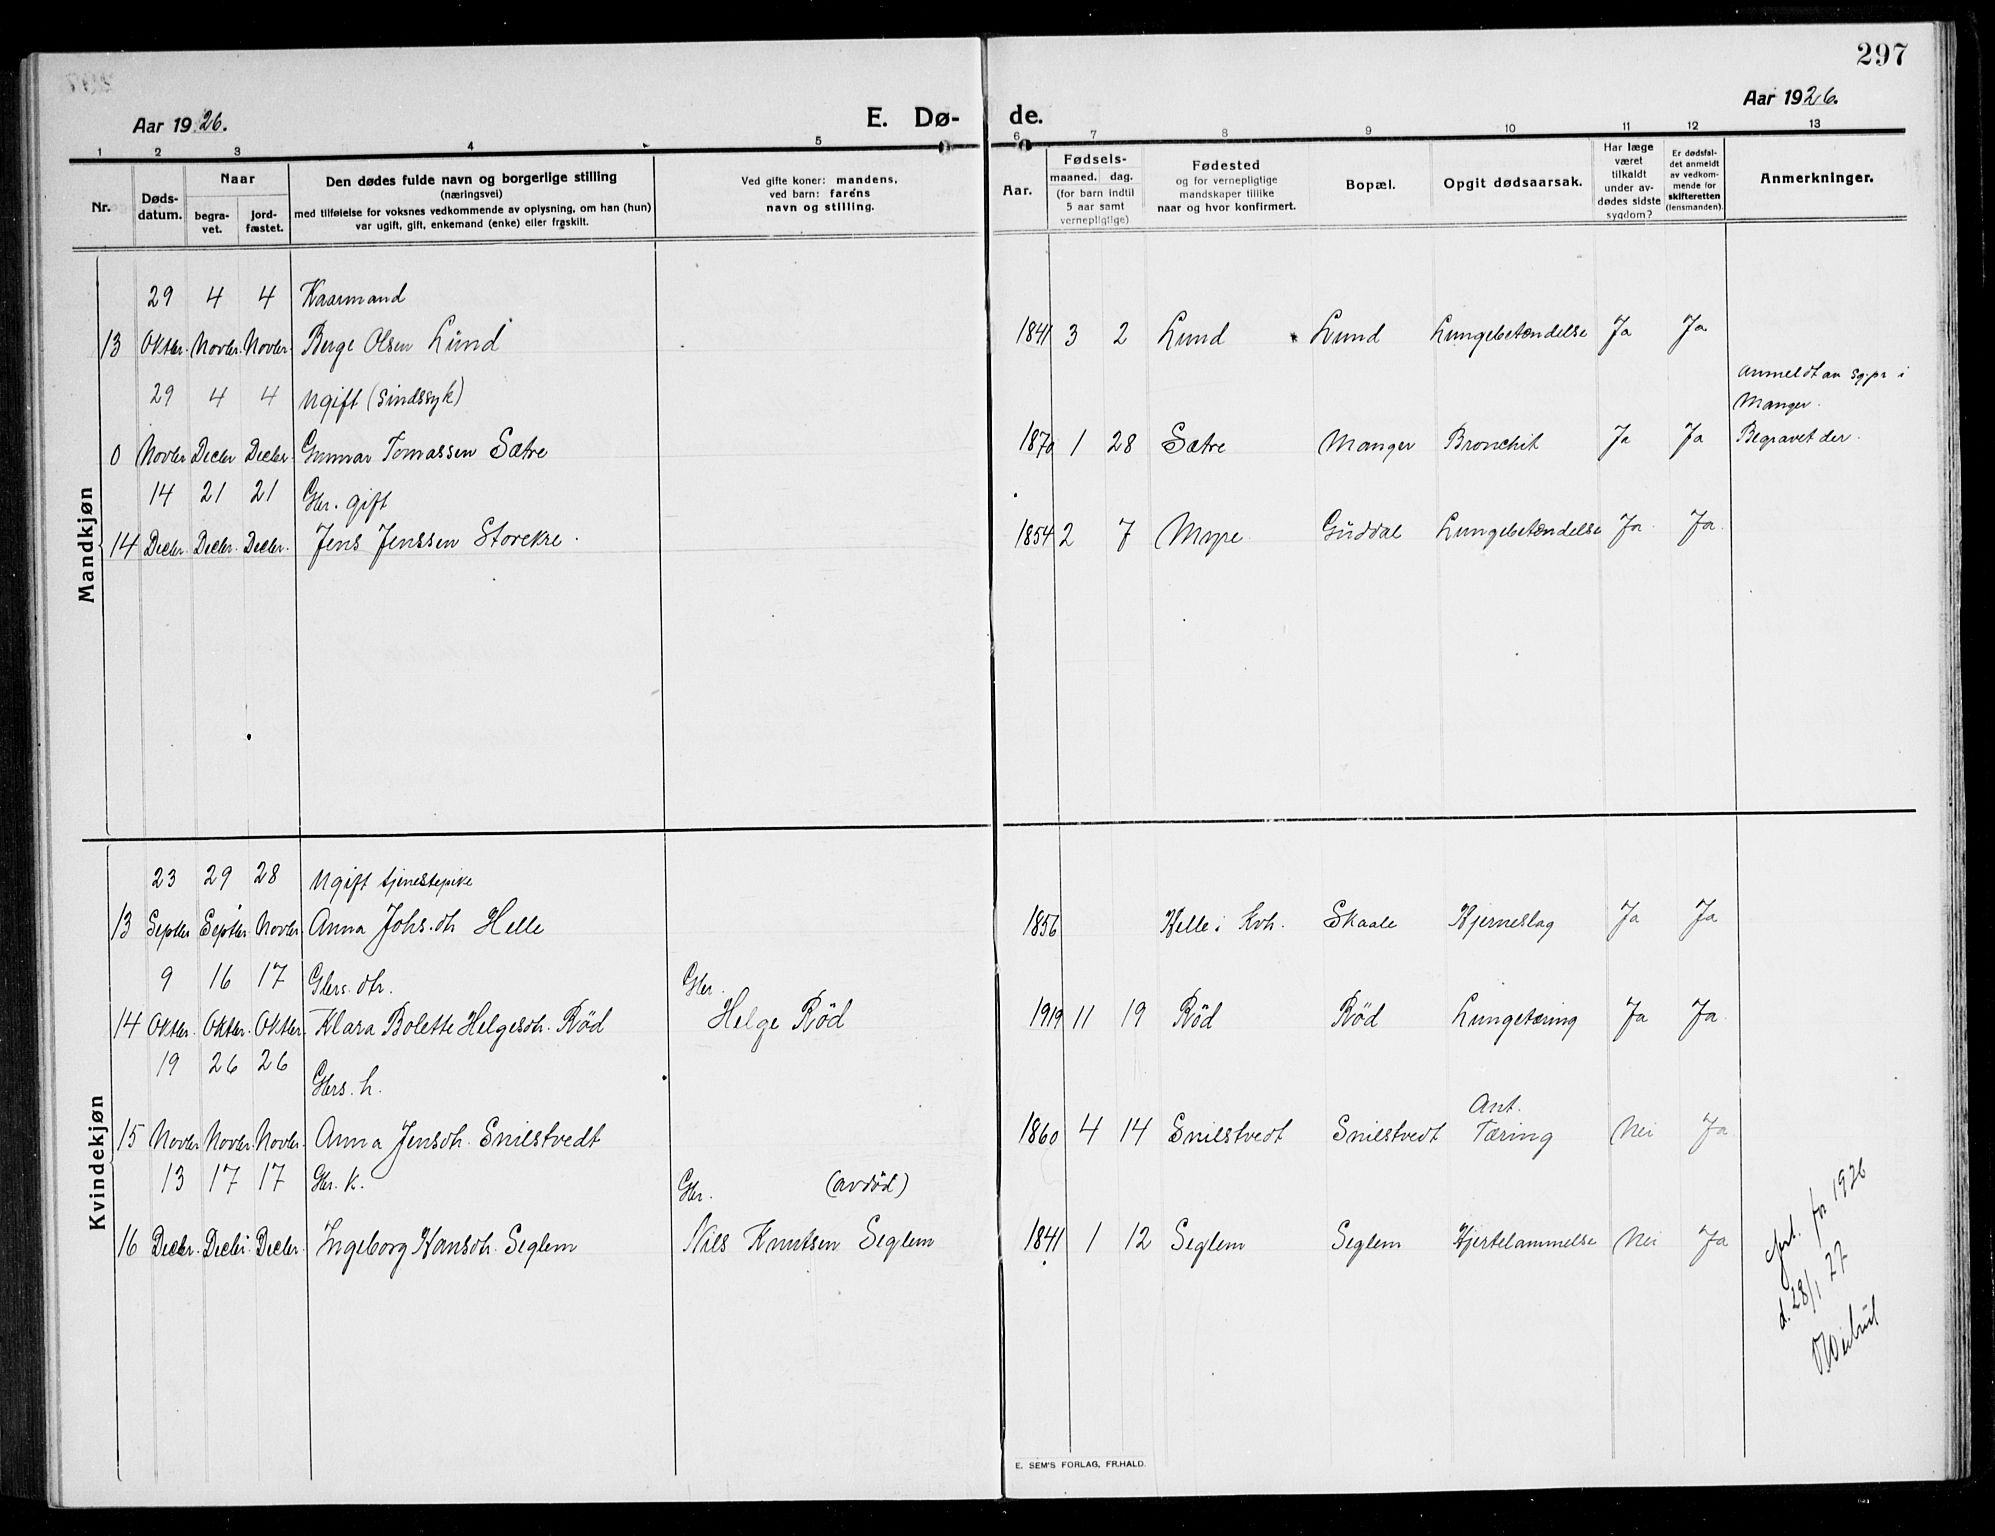 297
Aar 1926. E. Dø- de. Aar 1926.
1 2 3 4 5 6 7 8 9 10 11 12 13
Nr.
Døds-
datum.
Naar
begra-
vet.
jord-
fæstet.
Den dødes fulde navn og borgerlige stilling
(næringsvei)
med tilføielse for voksnes vedkommende av oplysning, om han (hun)
var ugift, gift, enkemand (enke) eller fraskilt.
Ved gifte koner: mandens,
ved barn: farens
navn og stilling.
Aar.
Fødsels-
maaned. dag.
(for barn indtil
5 aar samt
vernepligtige)
Fødested
og for vernepligtige
mandskaper tillike
naar og hvor konfirmert.
Bopæl.
Opgit dødsaarsak.
Har læge
været
tilkaldt
under av-
dødes sidste
sygdom?
Er dødsfal-
det anmeldt
av vedkom-
mende for
skifteretten
(lensmanden).
Anmerkninger.
Mandkjøn
29 4 4 Kaarmand
13 Oktbr. Novbr. Novbr. Berge Olsen Lund 1841 3 2 Lund Lund Lungebetændelse Ja Ja
29 4 4 Ugift (sindssyk) Anmeldt av sg.pr i
Manger.
0 Novbr Decbr Decbr. Gunnar Tomassen Sætre 1870 1 28 Sætre Manger Bronchit Ja Ja Begravet der.
14 21 21 Gbr. gift
14 Decbr. Decbr. Decbr. Jens Jenssen Storekre. 1854 2 7 Myre Guddal Lungebetændelse Ja Ja
Kvindekjøn
23 29 28 Ugift tjenestepike
13 Septbr Septbr Novbr Anna Johs.dtr Helle 1856 Helle i Kvh. Skaale Hjerneslag Ja Ja
9 16 17 Gbrs. dtr. Gbr.
14 Oktbr. Oktbr. Oktbr Klara Bolette Helgesdtr. Rød Helge Rød 1919 11 19 Rød Rød Lungetæring Ja Ja
19 26 26 Gbrs. h. Ant.
15 Novbr Novbr. Novbr. Anna Jensdtr. Snilstvedt 1860 4 14 Snilstvedt Snilstvedt Tæring Nei Ja
13 17 17 Gbr. k. Gbr. (avdød)
16 Decbr. Decbr. Decbr. Ingeborg Hansdtr. Seglem Nils Knutsen Seglem 1841 1 12 Seglem Seglem Hjertelammelse Nei Ja
for 1926
d. 28/1 27
E. SEM'S FORLAG, FR.HALD.